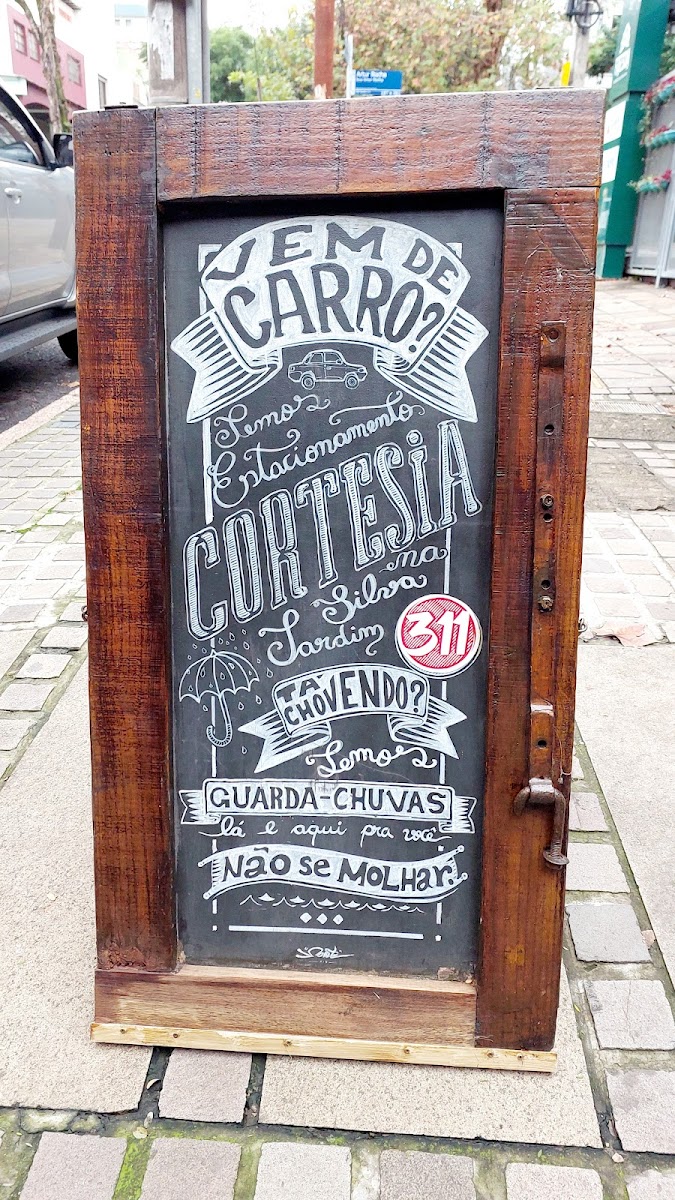 VEM DE
CARRO?
Temos
Estacionamento
CORTESiA
na
Silva
Jardim
311
TÁ
CHOVENDO?
Temos
GUARDA-CHUVAS
lá e aqui pra você
NÃO SE MOLHAR.
Artur Rocha